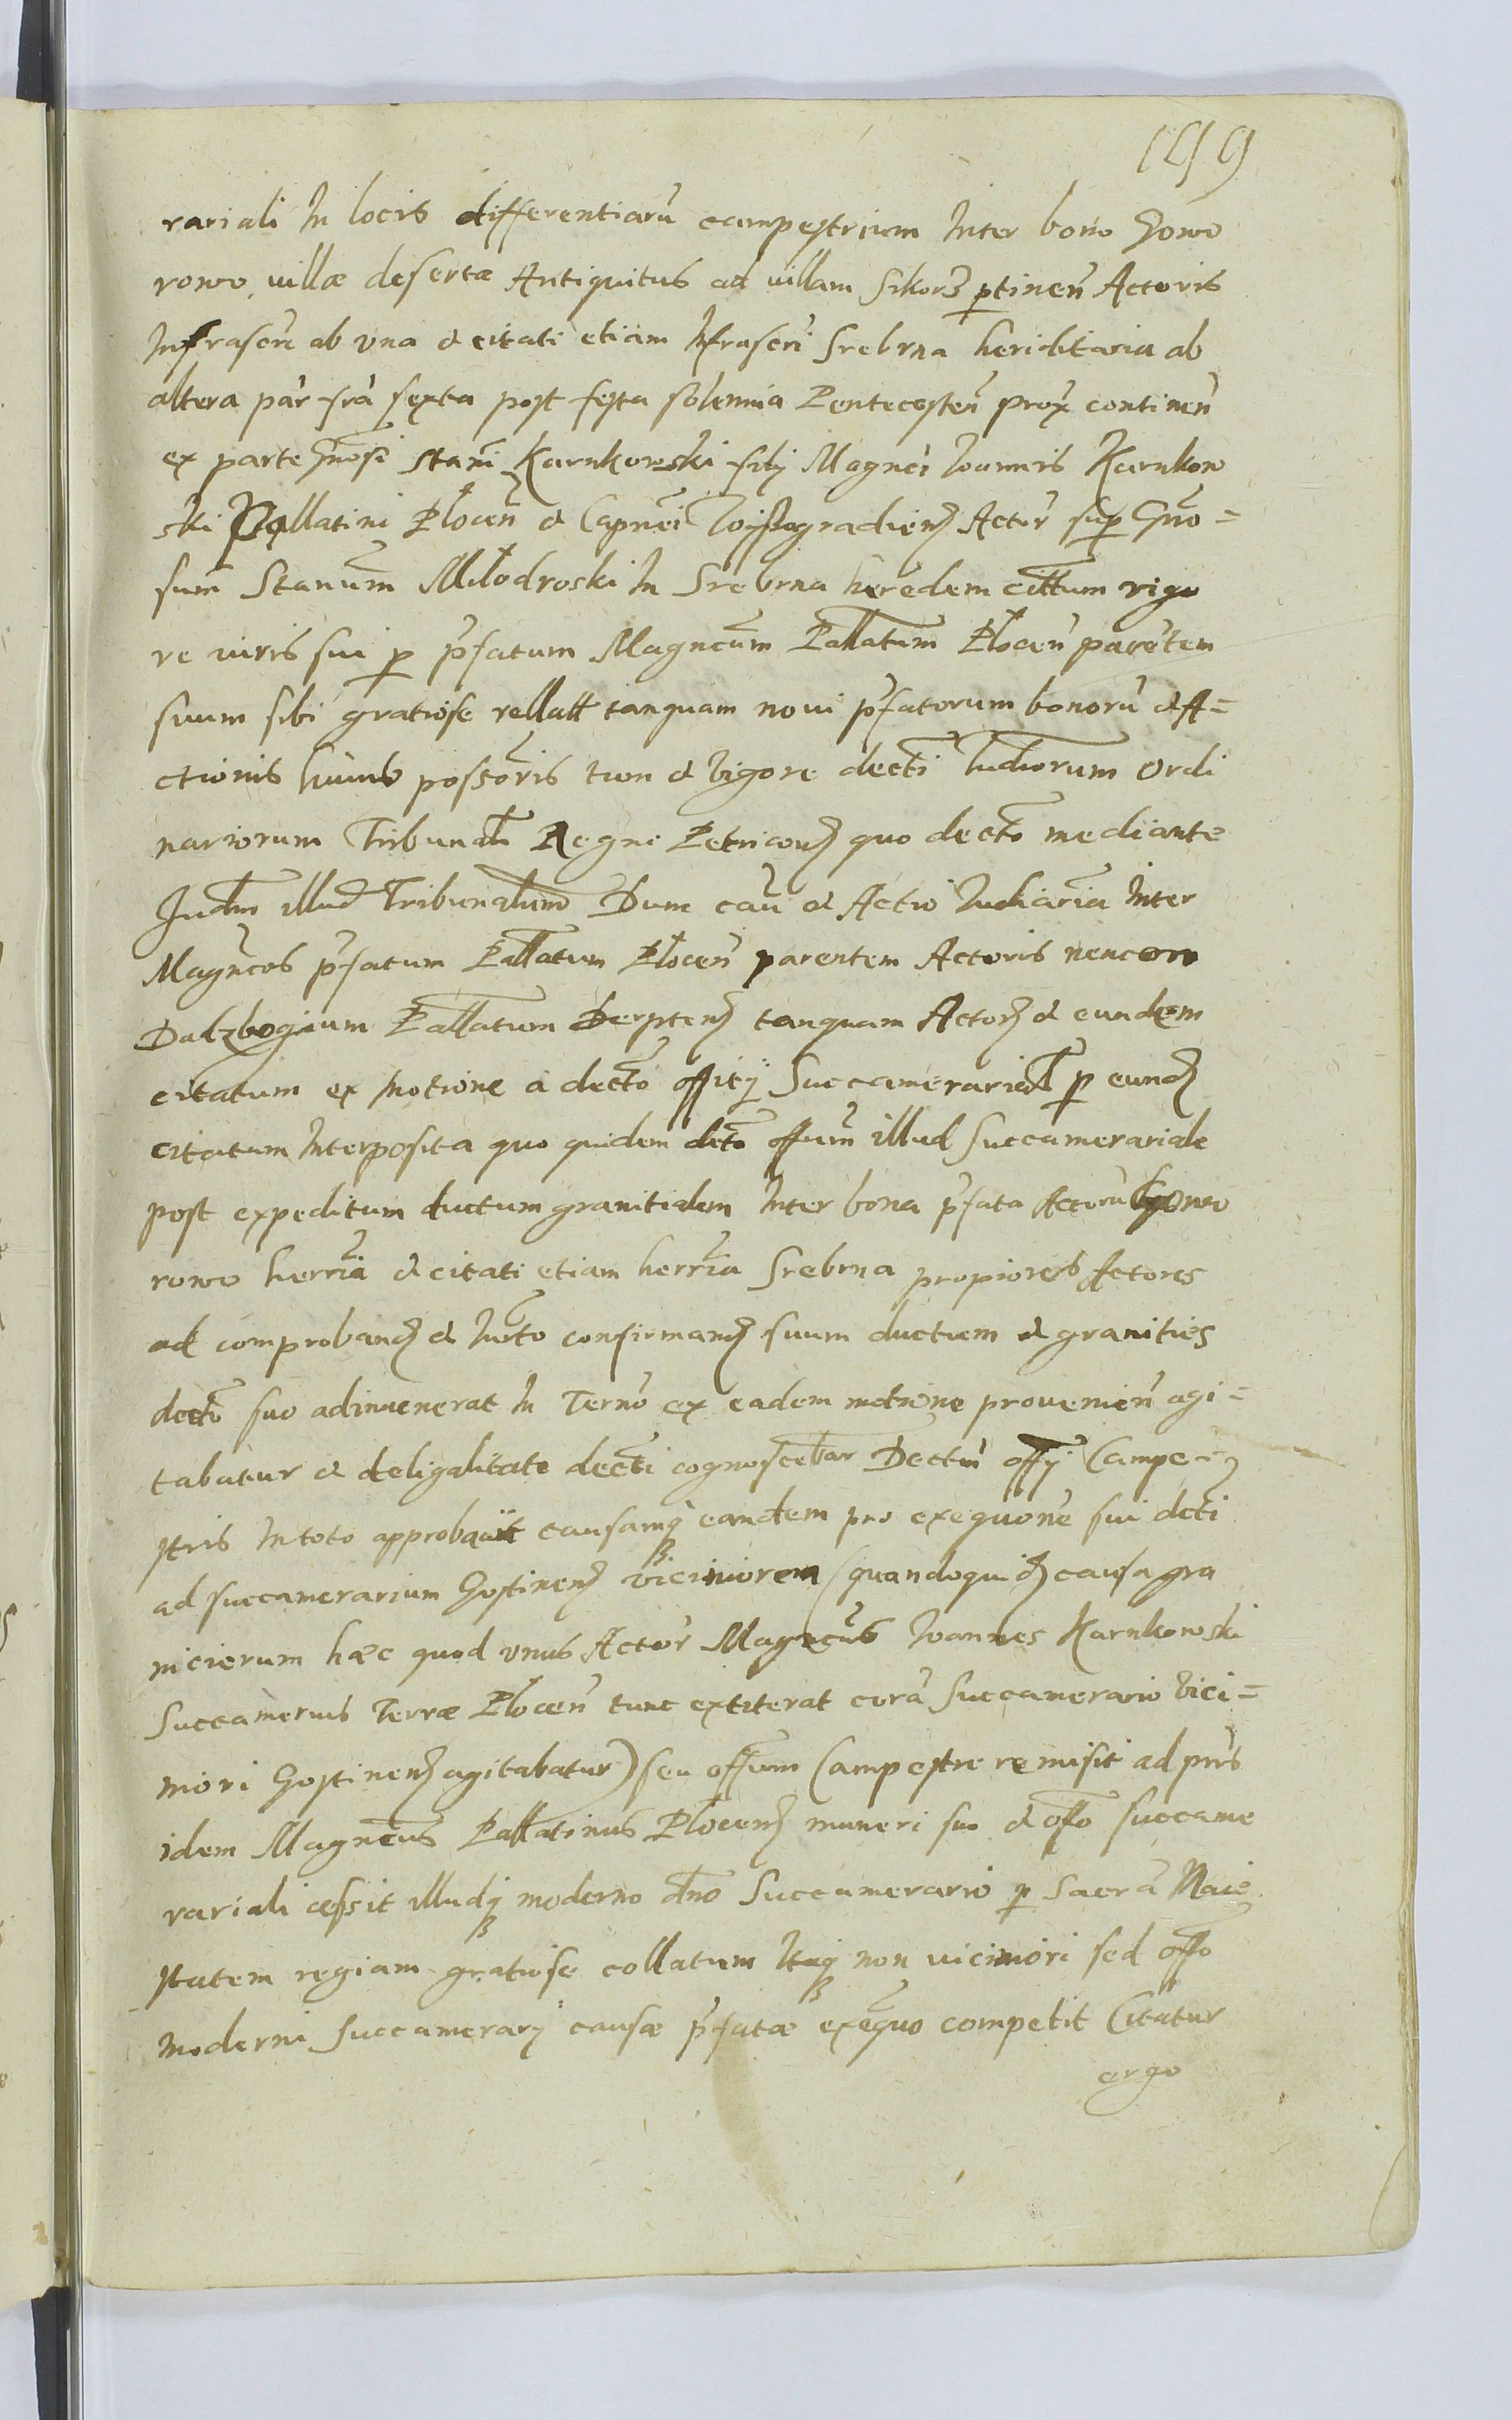 149
rariali In locis differentiarũ campestrium Inter bona Gowo
rowo, villæ desertæ Antiquitus ad villam Sikorz ptinen̄ Actoris
Infrascri ab vna & citati etiam Infrascri Srebrna heriditaria ab
altera par fra sexta post festa solennia Pentecosten̄ prox continen̄
ex parte Gnosi Stani Karnkowski filij Magnci Ioannis Karnkow
ski Pallatini Płocen̄ & Capnei Actor sup Gno=
sum Stanum Młodroski In Srebrna heredem cittum vigo
re iuris sui p pfatum Magncum Pallatum Płocen̄ parētem
suum sibi gratiose rellatt tanquam noui pfatorum bonorũ & A=
ctionis huius possoris tum & vigore decti Iudiorum Ordi
nariorum Tribunat Regni Petricon quo decto mediante
Iudm illud Tribunatum Dum cau & Actio Iudiaria Inter
Magncos pfatum Pallatum Płocen̄ parentem Actoris nencom
Dulzbogium Pallatum Derpten tanquam Actor & eundem
citatum ex motione a decto offitij Succamerariat p eund
citatum Interposita quo quidem decto offium illud Succamerariale
post expeditum ductum granitialem Inter bona pfata Actorũ Gowo
rowo herria & citati etiam herria Srebrna propiores Actores
ad comproband & Iurto confirmand suum ductum & granities
decto suo adinuenerat In Terno ex eadem motione prouenien̄ agi=
tabatur & deligalitate decti cognoscebar Dectũ offij Campe=
stris In toto approbauit causamq eandem pro exequone sui decti
ad succamerarium Gostinen viciniorem (quandoquid causa gra
nicierum hæc quod vnus Actor Magncus Ioannes Karnkowski
Succamerius Terræ Płocen̄ tunc extiterat corã Succamerario vici=
niori Gostinen agitabatur) seu offium Campestre remisit ad prns
idem Magncus Pallatinus Płocen muneri suo & offo succame
rariali cessit illudq moderno dno Succamerario p Sacrã Maie
statem regiam gratiose collatum Itaq non viciniori sed offo
moderni Succamerarij causæ pfatæ exequo competit Citatur
ergo